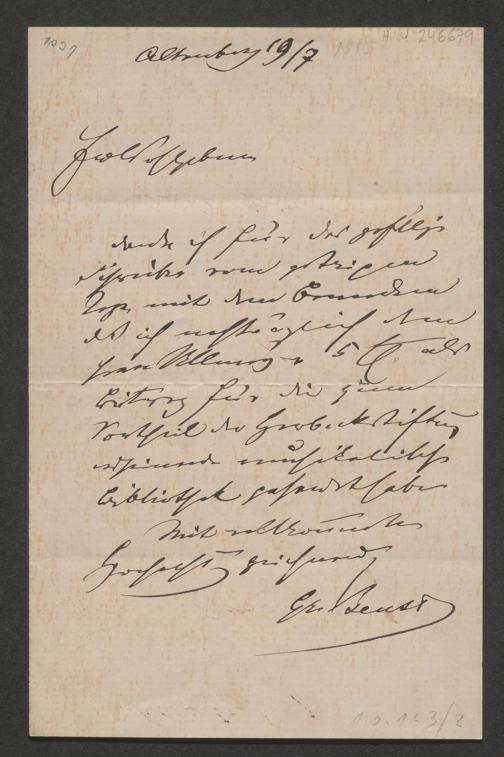 Altenburg 19/7
A.N. 246679
Hochwohlgeboren
danke ich für das gefällige
Schreiben vom gestrigen
Tage mit dem Bemerken
daß ich nachträglich dem
Herrn 5 als
Beitrag für die zum
Vortheil der stiftung
erscheinende musikalische
Bibliothek gesendet habe
Mit vollkommenster
Hochachtung zeichnend
Gr. Beust